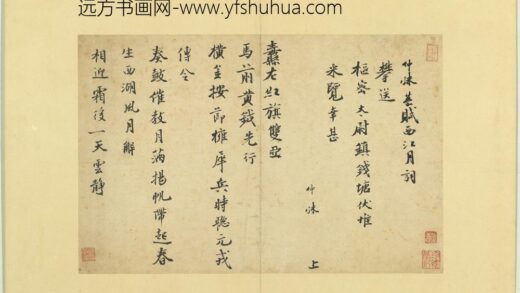 远方书画网-www.yfshuhua.com
恭賦西江月詞
攀送
樞密太尉鎮錢塘伏惟
采覽幸甚
上
纛右紅旗雙亞
馬前黃鉞先行
橫金按節擁犀兵時聽元戎
傳令
奏鼓催教月滿揚帆帶起春
生西湖風月解
相迎霜後一天雲靜